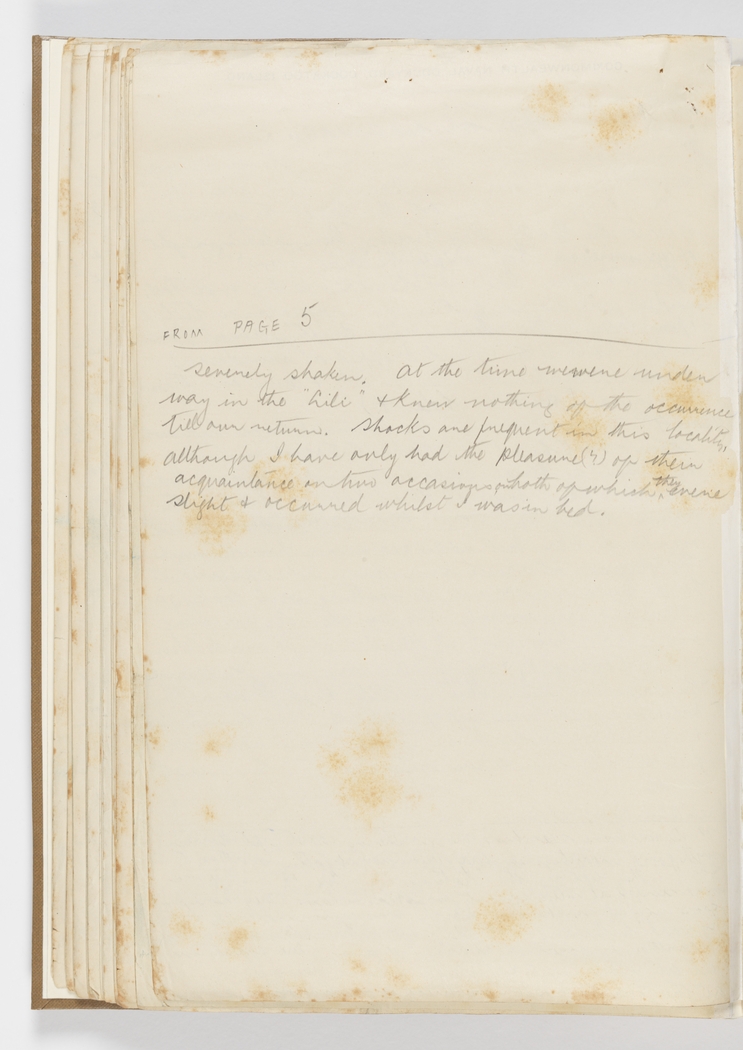 FROM PAGE 5
severely shaken. At the time we were under
way in the "Lili" & knew nothing of the occurrence
till our return. Shocks are frequent in this locality,
although I have only had the pleasure(?) of their
acquaintance on two occasions, on both of which they were
slight & occurred whilst I was in bed.